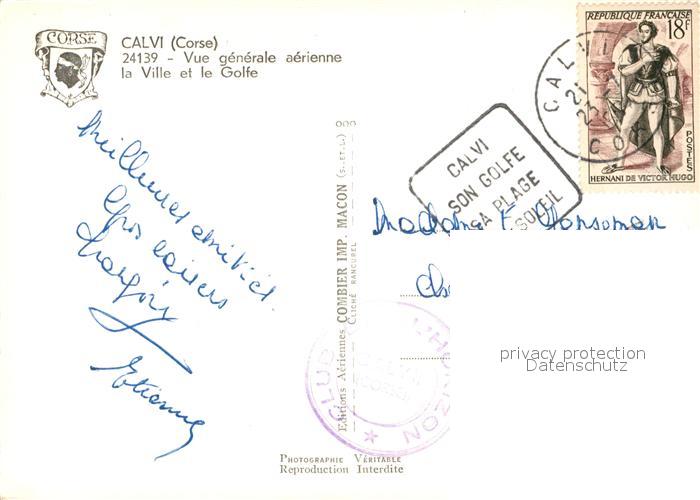 CORSE
CALVI (Corse)
24139 - Vue générale aérienne
la Ville et le Golfe
REPUBLIQUE FRANÇAISE
18F
POSTES
HERNANI DE VICTOR HUGO
CALVI
21
23
CALVI
SON GOLFE
SA PLAGE
SOLEIL
Meilleures amitiés
Gros baisers
Etienne
Madame F.
Editions Aériennes COMBIER IMP. MACON (S.-ET-L.)
CLICHÉ RANCUREL
CLUB
PHOTOGRAPHIE VÉRITABLE
Reproduction Interdite
privacy protection
Datenschutz